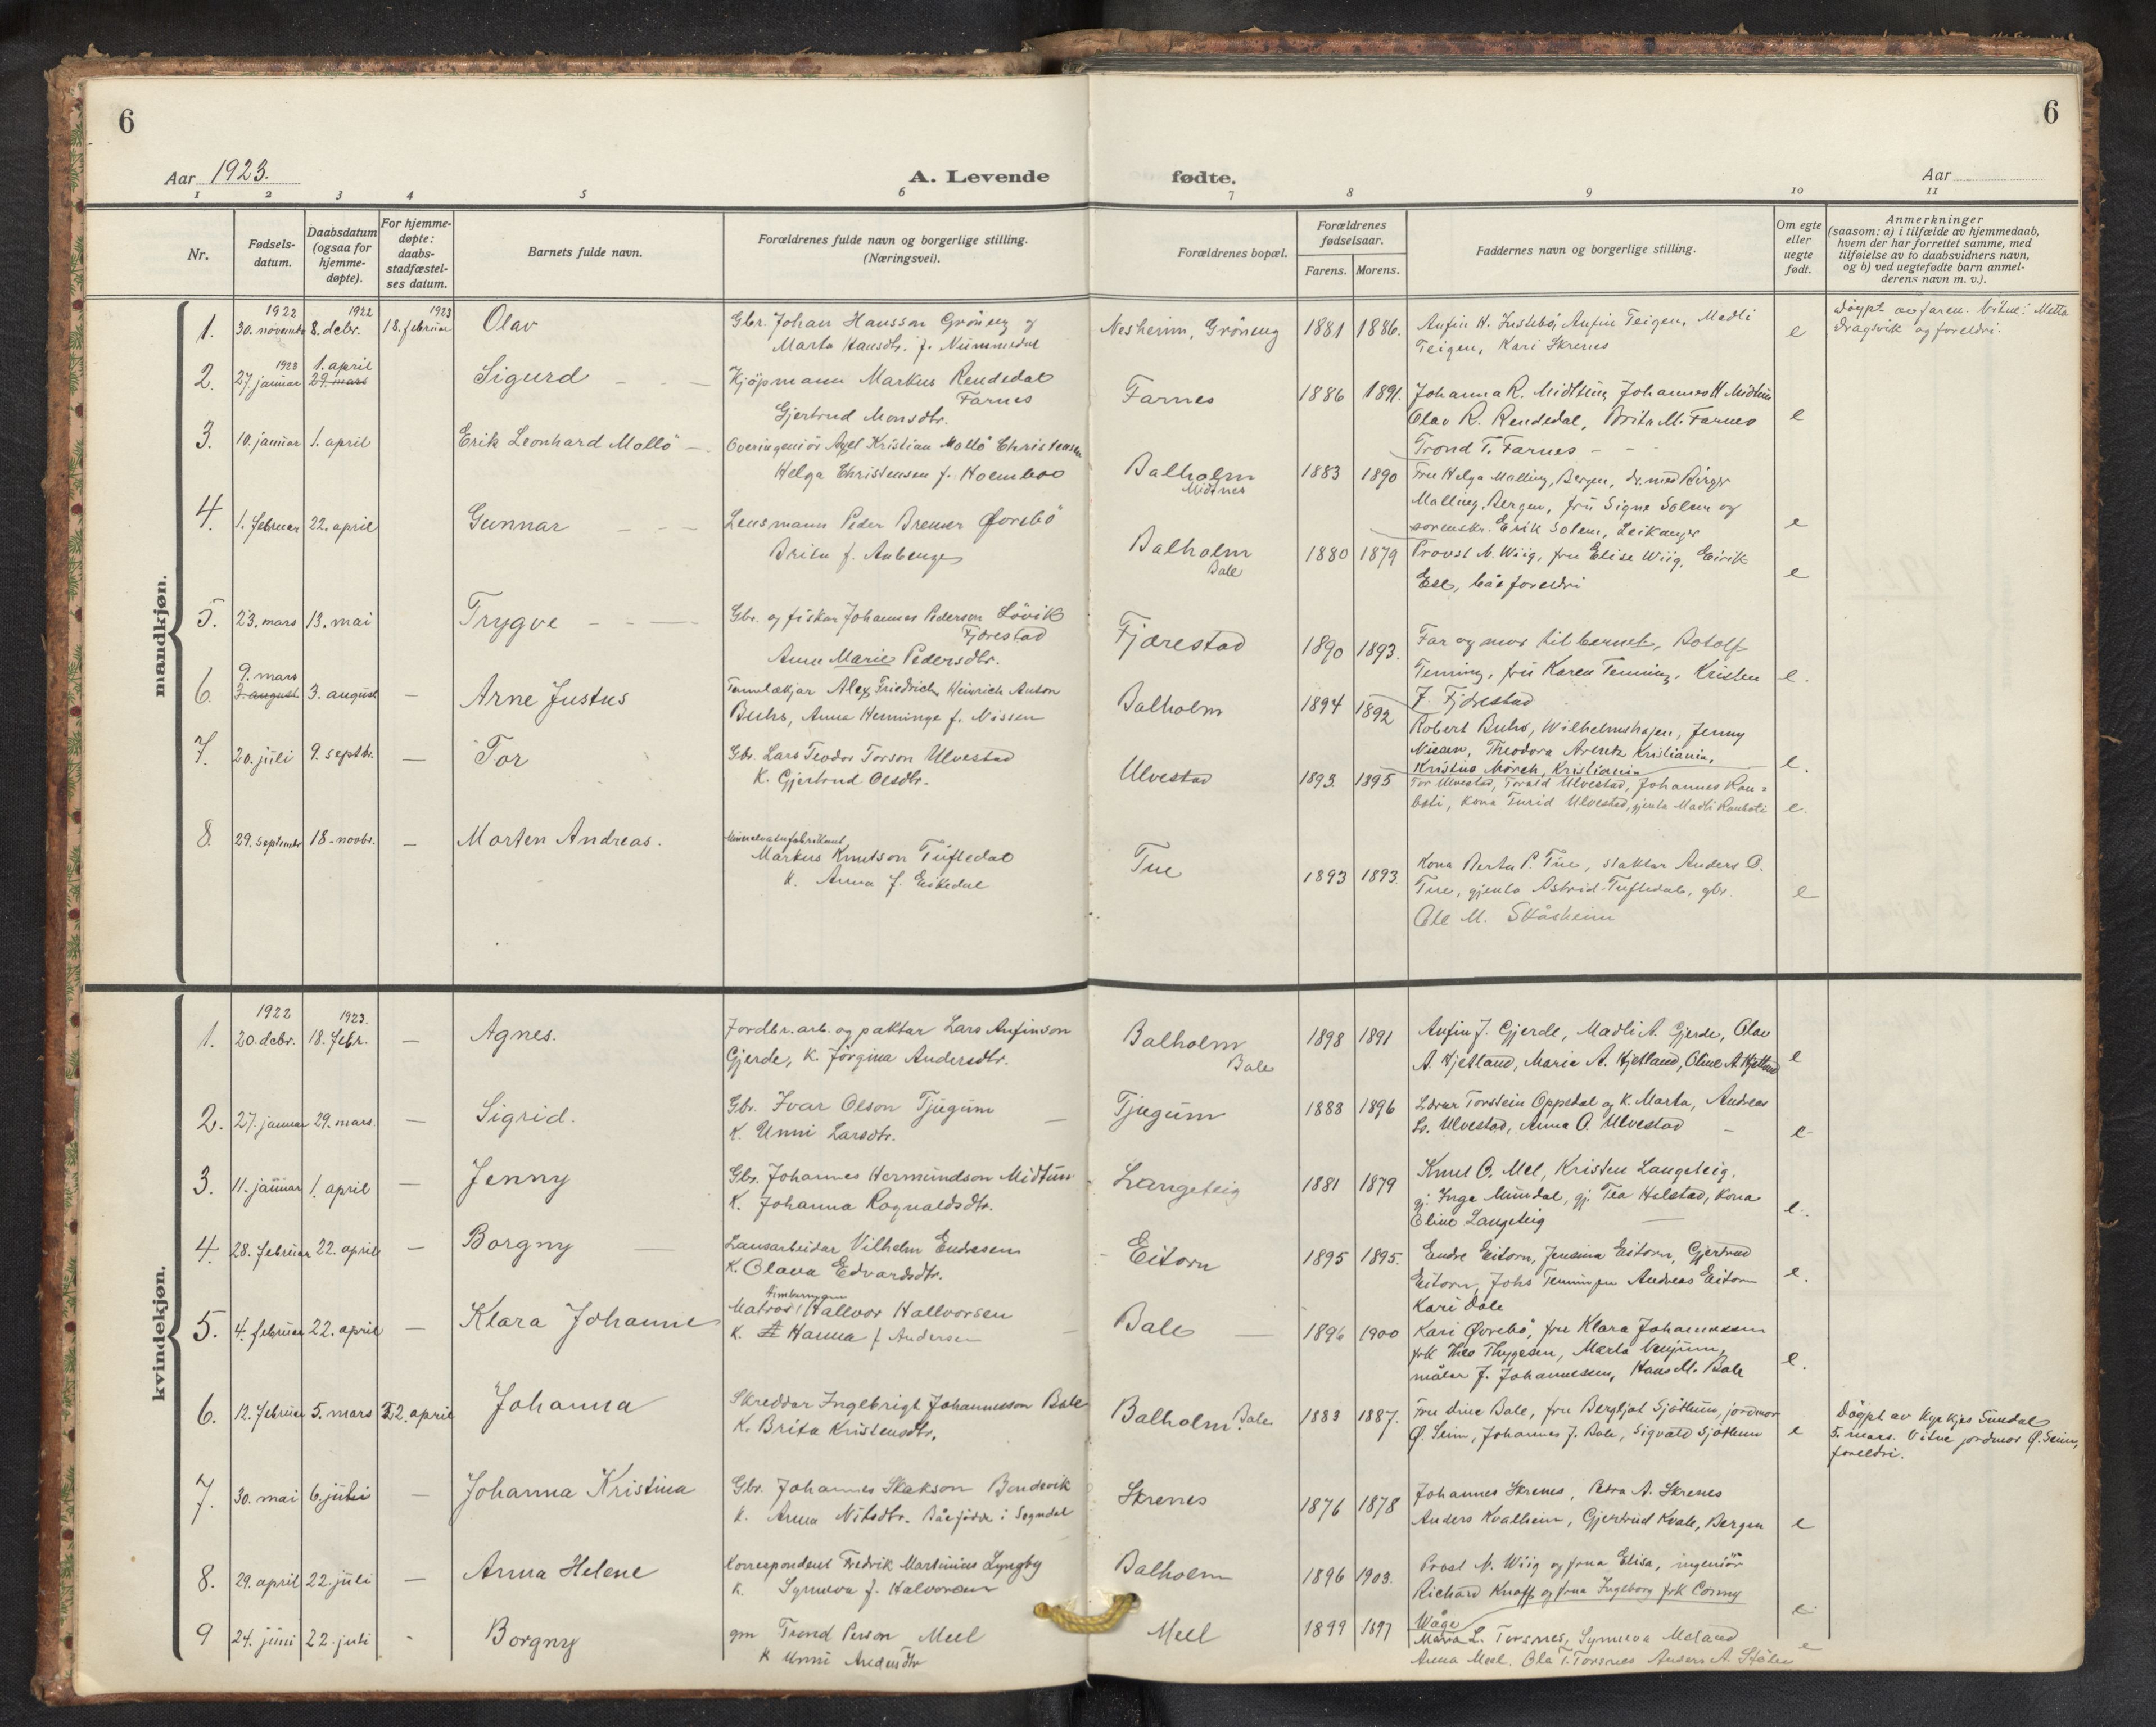 6
6
Aar 1923.
A. Levende
fødte.
Aar
1 2 3 4 5 6 7 8 9 10 11
Nr.
Fødsels-
datum.
Daabsdatum
(ogsaa for
hjemme-
døpte).
For hjemme-
døpte:
daabs-
stadfæstel-
ses datum.
Barnets fulde navn.
Forældrenes fulde navn og borgerlige stilling.
(Næringsvei).
Forældrenes bopæl.
Forældrenes
fødselsaar.
Farens. Morens.
Faddernes navn og borgerlige stilling.
Om egte
eller
uegte
født.
Anmerkninger
(saasom: a) i tilfælde av hjemmedaab,
hvem der har forrettet samme, med
tilføielse av to daabsvidners navn,
og b) ved uegtefødte barn anmel-
derens navn m. v.).
mandkjøn.
1922 1922 1923
1. 30. novembr 8. debr. 18. februar Olav
Gbr. Johan Hansson Gröneng og
Marta Hansdtr. f. Nummedal
Nesheim, Gröneng 1881 1886.
Anfin H. Instebö, Anfin Teigen, Madli
Teigen, Kari Skrenes
e
Döypt av faren. Vitne: Metta
Dragsvik og foreldri.
1923 1. april
2. 27. januar 29. mars Sigurd
Kjöpmann Markus Rendedal
Farnes
Gjertrud Monsdtr.
Farnes 1886 1891.
Johanna R. Midttun, Johannes H. Midttun
Olav R. Rendedal, Brita M. Farnes
Trond T. Farnes
e
3. 10. januar 1. april Erik Leonhard Mollö
Overingeniör Axel Kristian Mollö Christensen
Helga Christensen f. Holmboe
Balholm
Midtnes
1883 1890
Fru Helga Malling, Bergen, dr. med Birger
Malling, Bergen, fru Signe Solem og
sorenskr. Erik Solem, Leikanger
e
4. 1. februar 22. april Gunnar
Lensmann Peder Bremer Övrebö
Brita f. Aabenge
Balholm
Bale
1880 1879
Provst N. Wiig, fru Elise Wiig, Eirik
Ese, båe foreldri
e
5. 23. mars 13. mai Trygve
Gbr. og fiskar Johannes Pederson Lövik
Fjærestad
Anne Marie Pedersdtr.
Fjærestad 1890 1893.
Far og mor til barnet, Botolf
Tenning, fru Karen Tenning, Kristen
J. Fjærestad
e.
9. mars
6. 3. august 3. august Arne Justus
Tannlækjar Alex Friedrich Heinrich Anton
Buhs, Anna Henninge f. Nissen
Balholm 1894 1892
Robert Buhs, Wilhelmshafen, Jenny
Nissen, Theodora Arentz Kristiania,
Kristine Mörch, Kristiania
e.
7. 20. juli 9. septbr. Tor
Gbr. Lars Teodor Torson Ulvestad
K. Gjertrud Olsdtr.
Ulvestad 1893. 1895
Tor Ulvestad, Torald Ulvestad, Johannes Kau-
boti, kona Turid Ulvestad, gjenta Madli Kauboti
e.
8. 29. september 18. novbr. Morten Andreas.
Mineralvatnfabrikant
Markus Knutson Tuftedal
K. Anna f. Eikedal
Tue 1893 1893.
Kona Berta P. Tue, slaktar Anders O.
Tue, gjenta Astrid Tuftedal, gbr.
Ole M. Skåsheim
e
kvindekjøn.
1922 1923.
1. 20. debr. 18. febr. Agnes.
Jordbr. arb. og paktar Lars Anfinson
Gjerde, K. Jörgina Andersdtr.
Balholm
Bale
1898 1891
Anfin J. Gjerde, Madli A. Gjerde, Olav
A. Hjetland, Maria A. Hjetland, Oline A. Hjetland
e
2. 27. januar 29. mars. Sigrid.
Gbr. Ivar Olson Tjugum
K. Unni Larsdtr.
Tjugum 1888 1896
Lærar Torstein Oppedal og K. Marta, Andreas
Lr. Ulvestad, Anna O. Ulvestad
e
3. 11. januar 1. april Jenny
Gbr. Johannes Hermundson Midttun
K. Johanna Ragnaldsdtr.
Langeteig 1881 1879
Knut O. Mel, Kristen Langeteig.
gj. Inga Mundal, gj. Tea Helstad, kona
Eline Langeteig
e.
4. 28. februar 22. april Borgny
Lausarbeidar Vilhelm Endresen
K. Olava Edvardsdtr.
Eitorn 1895 1895.
Endre Eitorn, Jensina Eitorn, Gjertrud
Eitorn, Johs Tenningen Andreas Eitorn
e.
5. 4. februar 22. april Klara Johanne
Tömmermann
Matros Hallvor Hallvorsen
K. Hanna f. Andersen
Bale 1896 1900
Kari Dale
Kari Övrebö, fru Klara Johannessen
frk Theo Thygesen, Marta Venjum,
målar J. Johannessen, Hans M. Bale
e.
6. 12. februar 5. mars 22. april Johanna
Skreddar Ingebrigt Johannesson Bale
K. Brita Kristensdtr.
Balholm. Bale 1883 1887.
Fru Dine Bale, fru Bergljot Sjötun, jordmor
Ø. Seim, Johannes J. Bale, Sigvald Sjötun
e
Döypt av kyrkjes. Sundal
5. mars. Vitne jordmor Ø. Seim,
foreldri.
7. 30. mai 6. juli Johanna Kristina
Gbr. Johannes Stakson Bondevik
K. Anna Nilsdtr. Båe födde i Sogndal
Skrenes 1876 1878
Johannes Skrenes, Petra A. Skrenes
Anders Kvalheim, Gjertrud Kvale, Bergen
e
8. 29. april 22. juli Anna Helene
Korrespondent Fredrik Martinius Lyngby
K. Synneva f. Halvorsen
Balholm 1896 1903.
Prost N. Wiig og frua Elisa, ingeniör
Richard Knoff og frua Ingeborg frk Conny
Wåge
e.
9 24. juni 22. juli Borgny
gm Trond Person Mel
K Unni Andersdtr
Mel 1899 1897
Maria L. Torsnes, Synneva Meland
Anna Mel. Ola T. Torsnes Anders A. Stölen
e